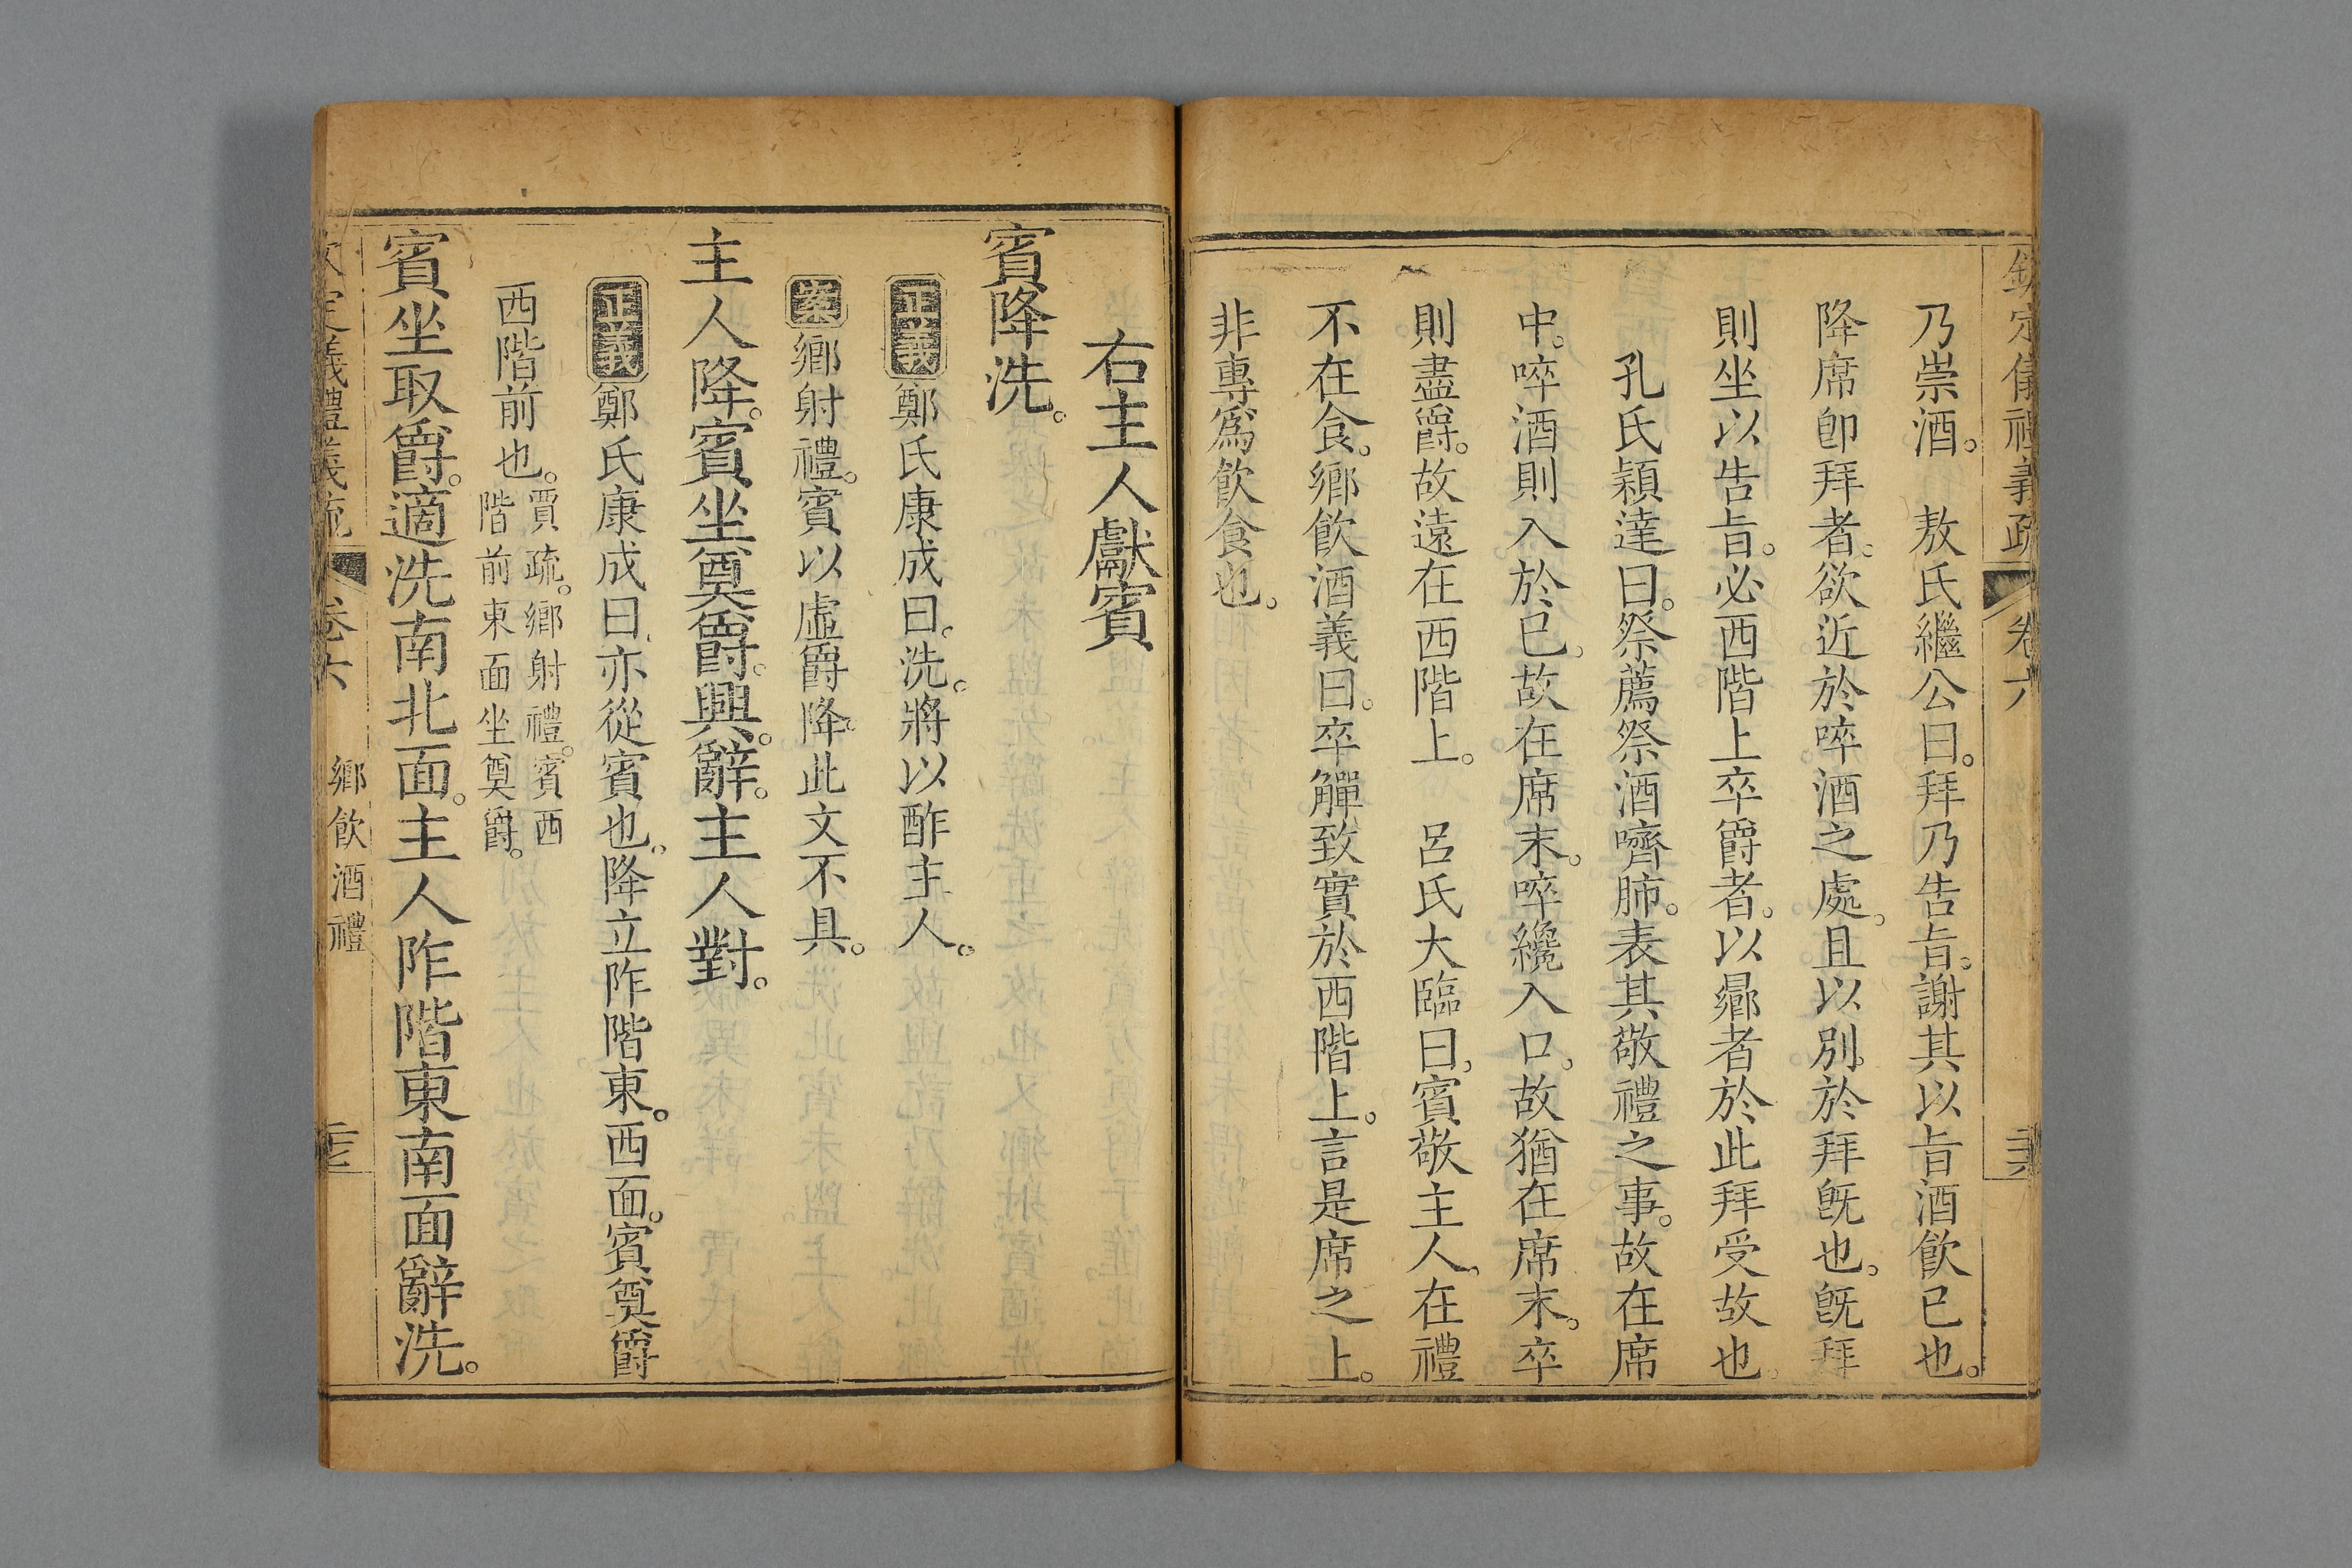 欽定儀禮義疏 卷六
乃崇酒。　敖氏繼公曰。拜乃告旨。謝其以旨酒飲已也。
降席卽拜者。欲近於啐酒之處。且以別於拜旣也。旣拜
則坐以告旨。必西階上卒爵者。以曏者於此拜受故也。
孔氏穎達曰。祭薦祭酒嚌肺。表其敬禮之事。故在席
中。啐酒則入於已。故在席末。啐纔入口。故猶在席末。卒
則盡爵。故遠在西階上。　呂氏大臨曰。賓敬主人。在禮
不在食。鄉飮酒義曰。卒觶致實於西階上。言是席之上。
非專爲飮食也。
右主人獻賓
賓降洗。
正義鄭氏康成曰。洗。將以酢主人。
案鄉射禮。賓以虛爵降。此文不具。
主人降。賓坐奠爵。興。辭。主人對。
正義鄭氏康成曰。亦從賓也。降立阼階東。西面。賓奠爵
西階前也。賈疏。鄉射禮。賓西
階前東面坐奠爵。
賓坐取爵。適洗南北面。主人阼階東南面辭洗。
定義禮義疏 卷六 鄉飮酒禮